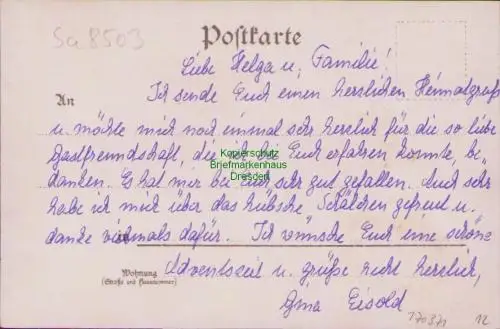 Sa 8503
Postkarte
Liebe Helga u. Familie!
An
Ich sende Euch einen herzlichen Heimatgruß
u. möchte mich noch einmal sehr herzlich für die so liebe
Gastfreundschaft, die ich bei Euch erfahren konnte, be-
danken. Es hat mir bei Euch sehr gut gefallen. Auch sehr
habe ich mich über das hübsche Schälchen gefreut u.
danke vielmals dafür. Ich wünsche Euch eine schöne
Adventszeit u. grüße recht herzlich,
Wohnung
(Straße und Hausnummer)
Gina Eisold
170371 12
Kopierschutz
Briefmarkenhaus
Dresden